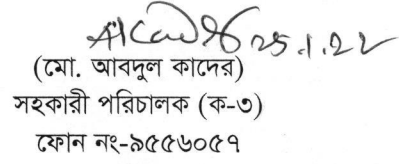 25.1.22
(মো. আবদুল কাদের)
সহকারী পরিচালক (ক-৩)
ফোন নং-৯৫৫৬০৫৭